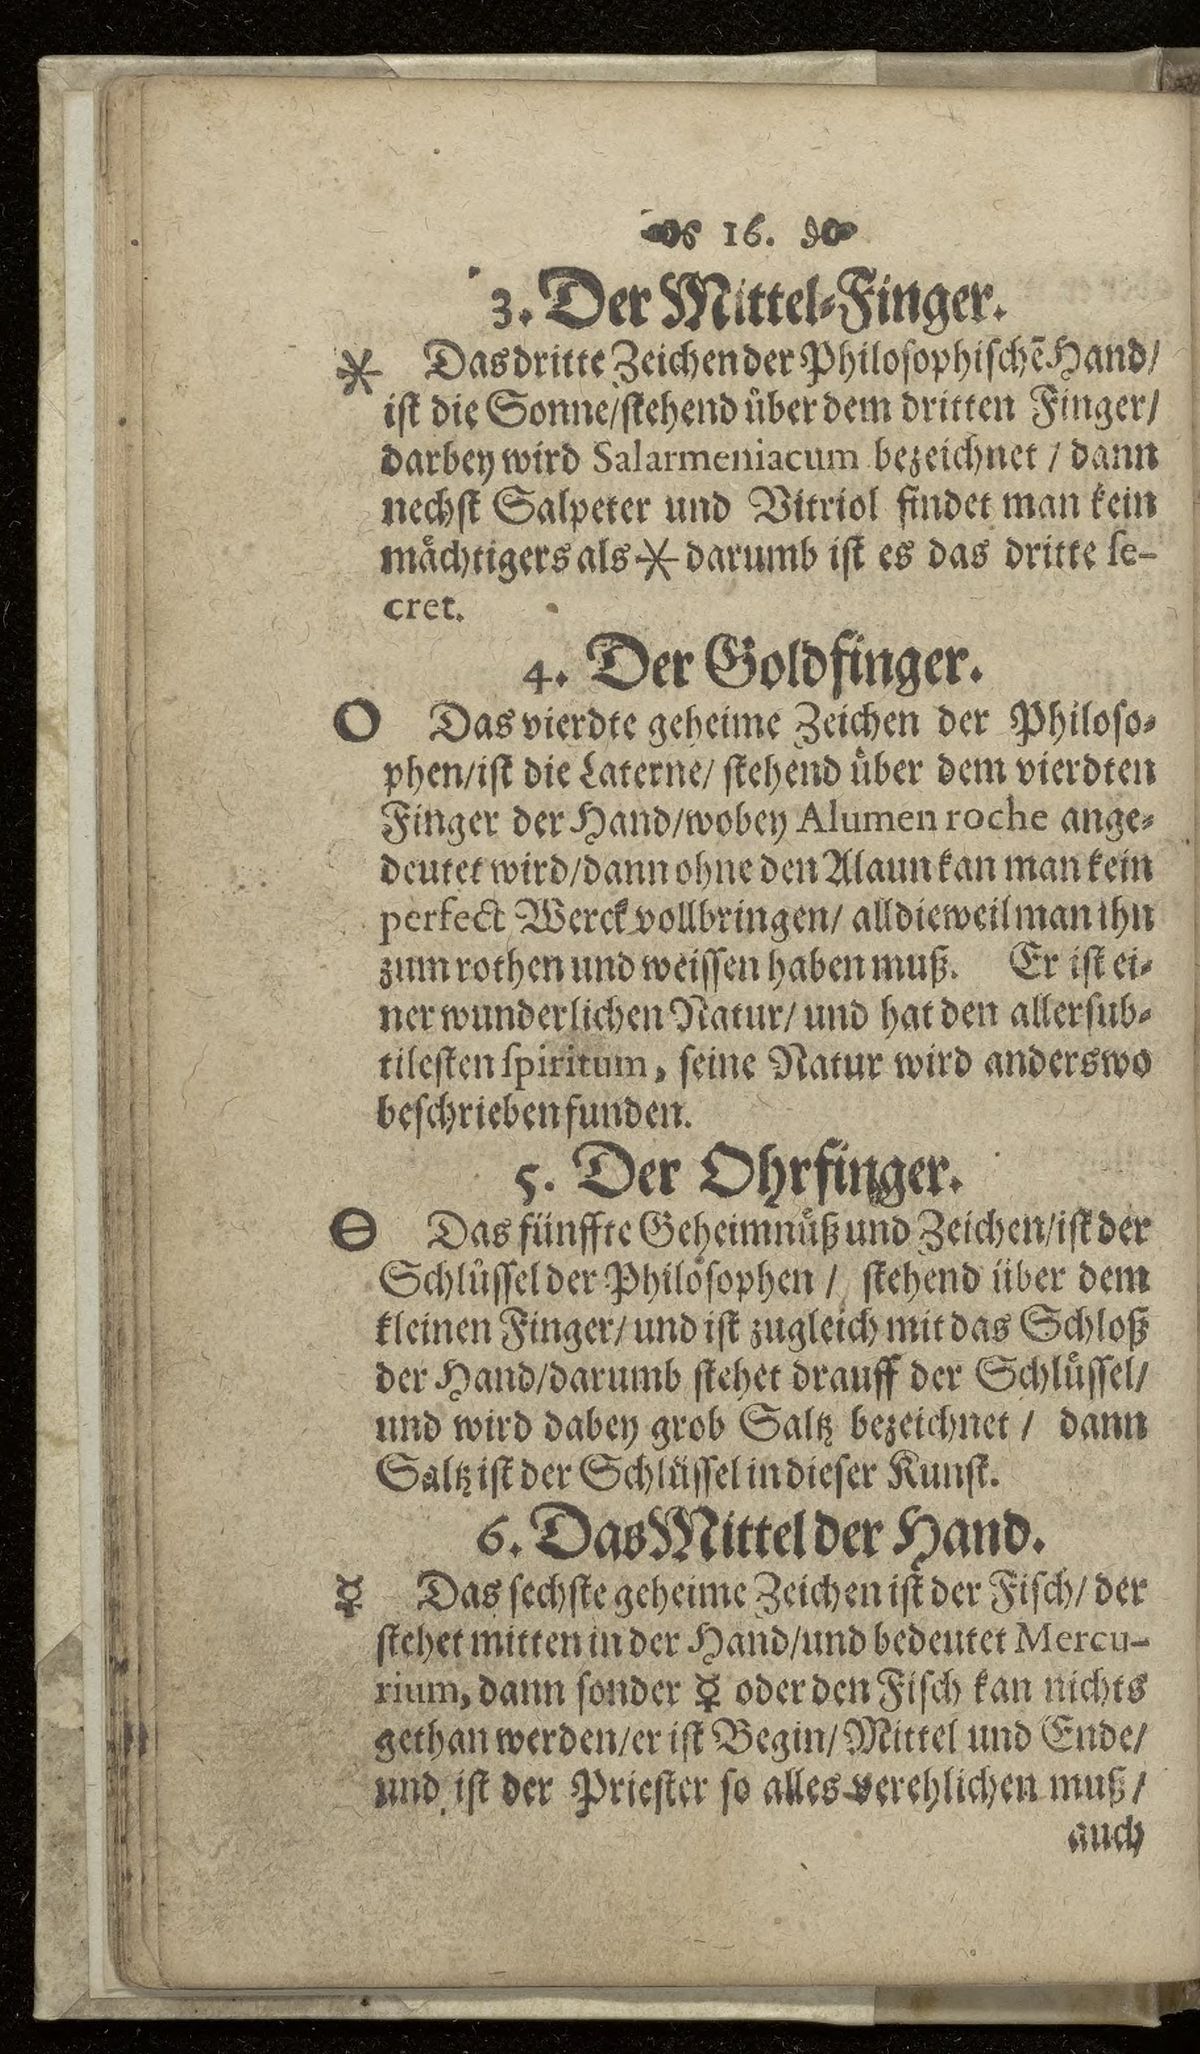 16.
3. Der Mittel-Finger.
🞶 Das dritte Zeichen der Philosophischẽ Hand/
ist die Sonne/stehend uͤber dem dritten Finger/
darbey wird Salarmeniacum bezeichnet / dann
nechst Salpeter und Vitriol findet man kein
maͤchtigers als 🞶 darumb ist es das dritte se-
cret.
4. Der Goldfinger.
O Das vierdte geheime Zeichen der Philoso-
phen/ist die Laterne/ stehend uͤber dem vierdten
Finger der Hand/wobey Alumen roche ange-
deutet wird/dann ohne den Alaun kan man kein
perfect Werck vollbringen/ alldieweil man ihn
zum rothen und weissen haben muß. Er ist ei-
ner wunderlichen Natur/ und hat den allersub-
tilesten spiritum, seine Natur wird anderswo
beschrieben funden.
5. Der Ohrfinger.
🜔 Das fünffte Geheimnuͤß und Zeichen/ist der
Schluͤssel der Philosophen / stehend über dem
kleinen Finger/ und ist zugleich mit das Schloß
der Hand/darumb stehet drauff der Schluͤssel/
und wird dabey grob Saltz bezeichnet / dann
Saltz ist der Schlüssel in dieser Kunst.
6. Das Mittel der Hand.
☿ Das sechste geheime Zeichen ist der Fisch/ der
stehet mitten in der Hand/und bedeutet Mercu-
rium, dann sonder ☿ oder den Fisch kan nichts
gethan werden/er ist Begin/ Mittel und Ende/
und ist der Priester so alles verehlichen muß /
auch